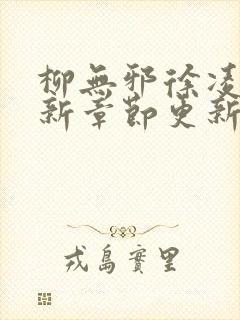 柳無邪徐凌
新章節更新
戎島實里